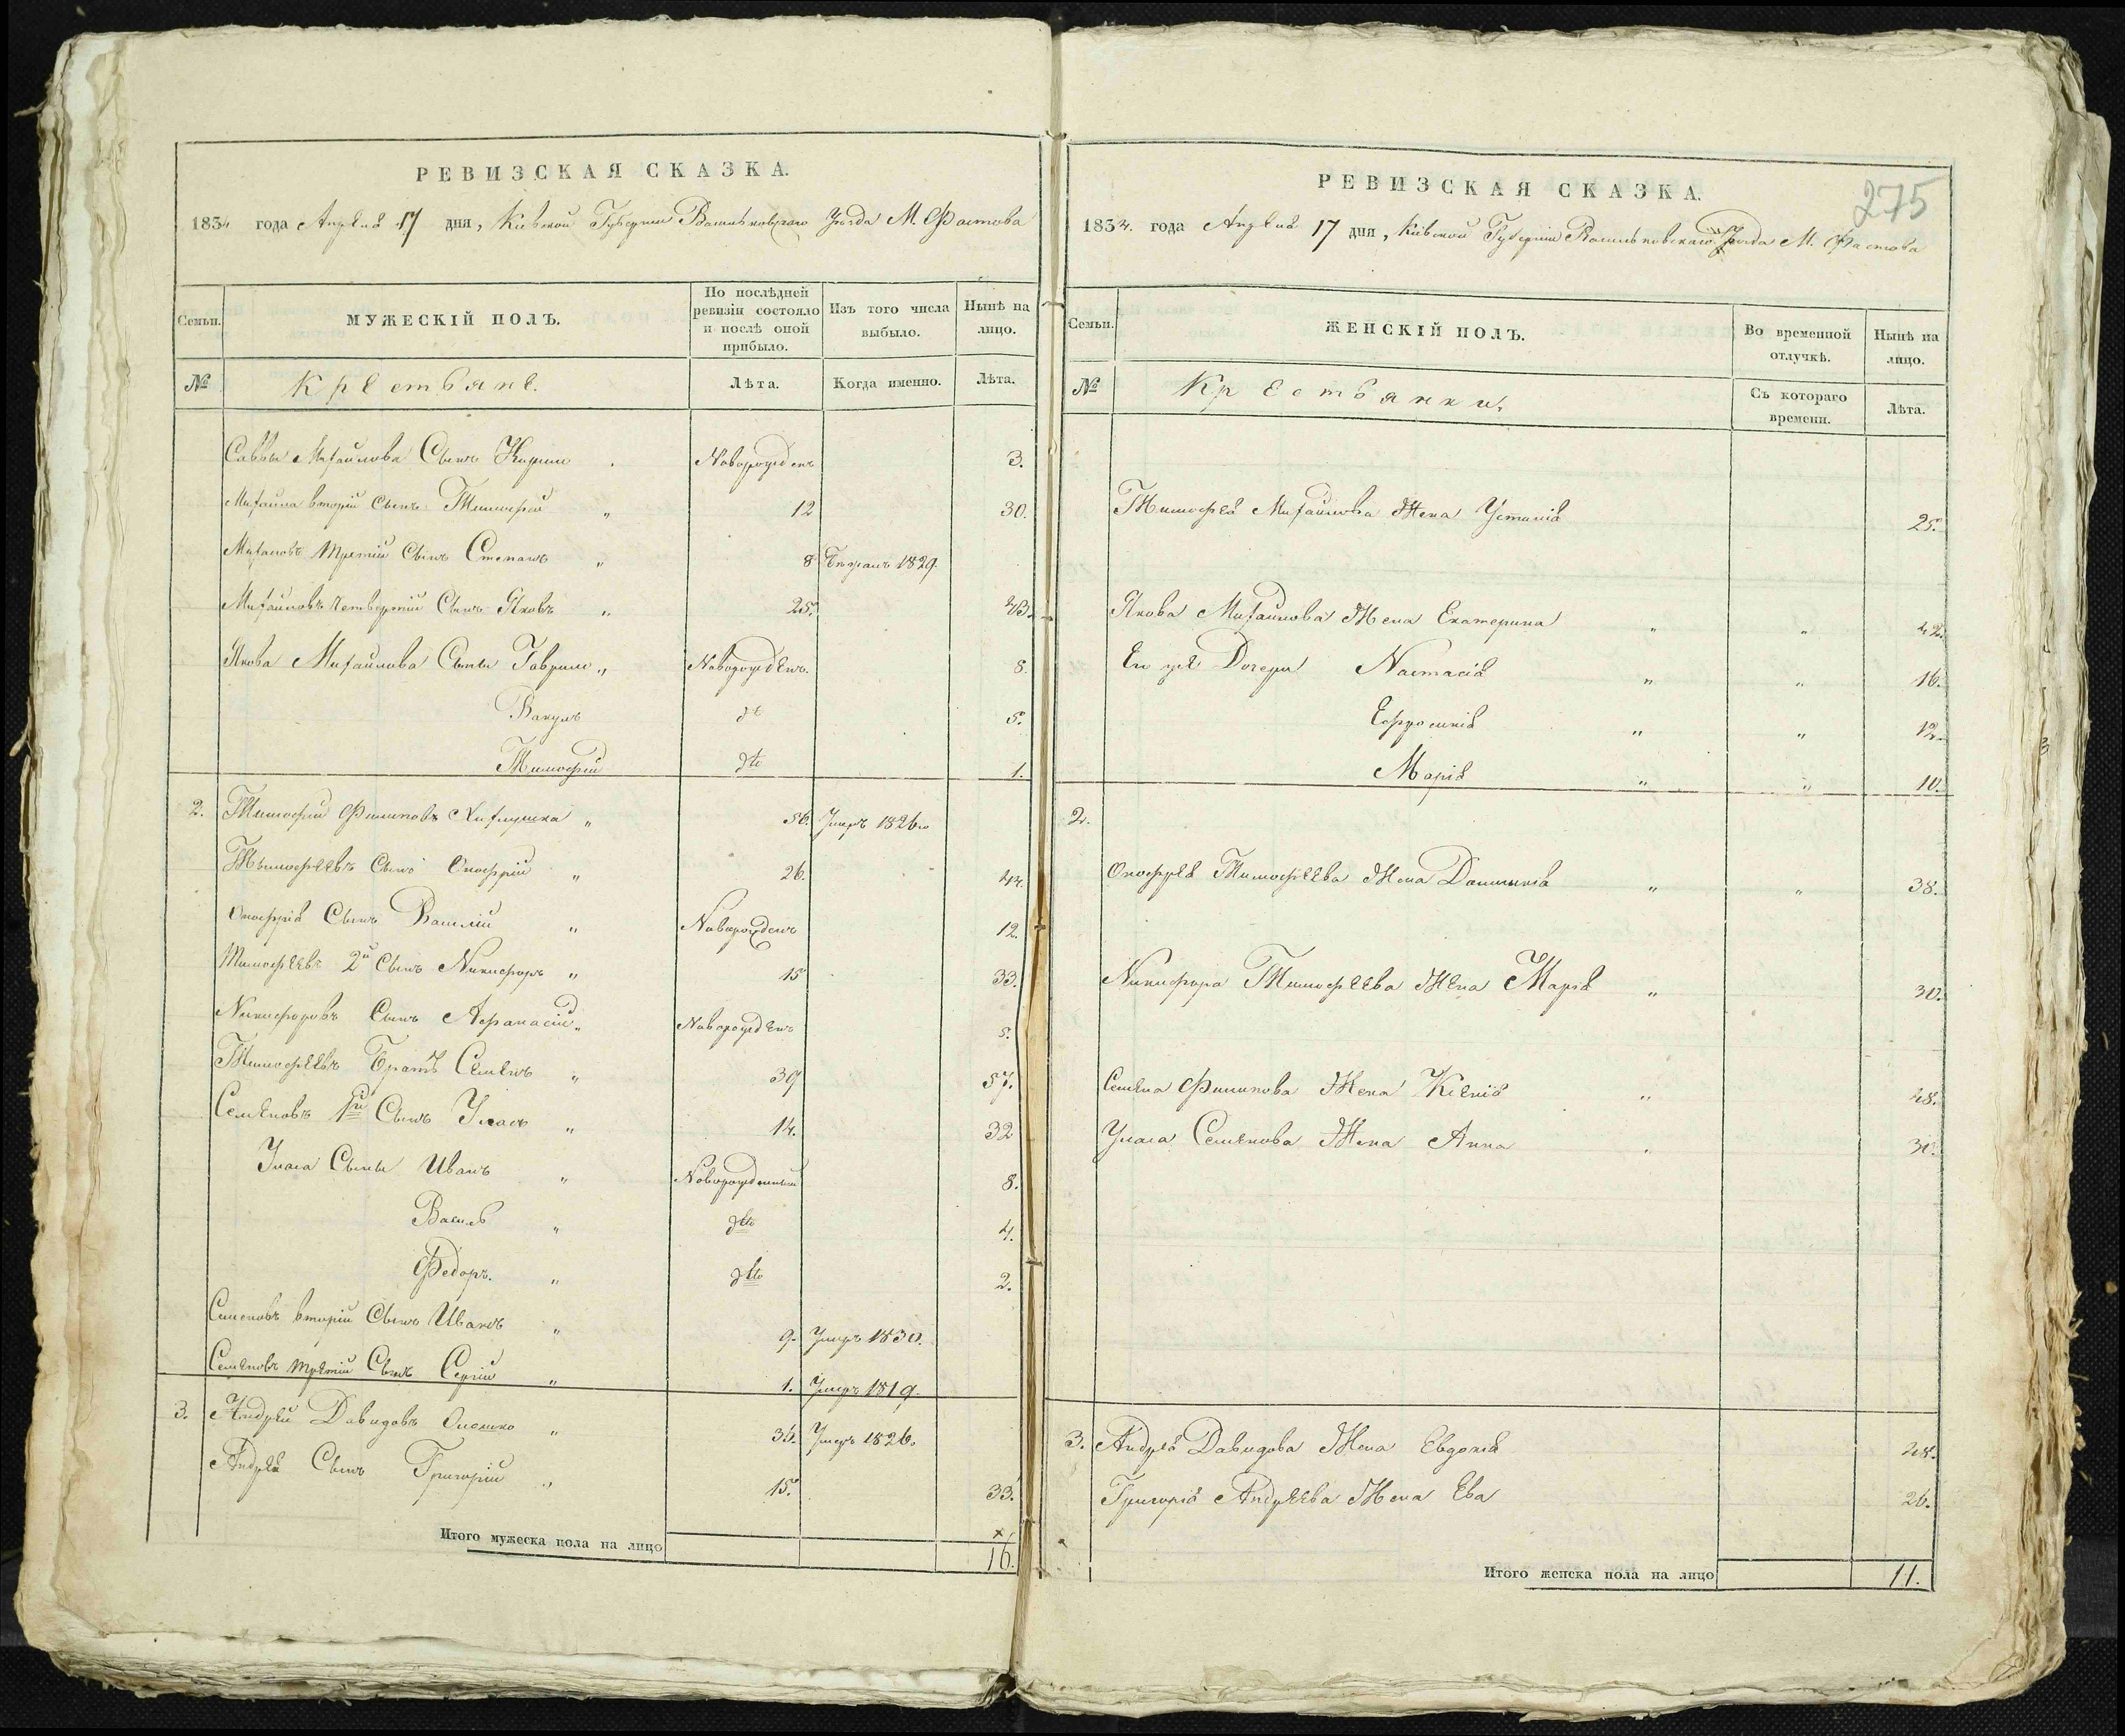 РЕВИЗСКАЯ СКАЗКА.
1834 года Апреля 17 дня, Кіевской Губерніи Васильковскаго Уезда М. Фастова
Семьи. МУЖЕСКІЙ ПОЛЪ. По послѣдней ревизіи состояло и послѣ оной прибыло. Изъ того числа выбыло. Нынѣ на лицо.
№ Крестьяне. Лѣта. Когда именно. Лѣта.
Саввы Михайлова Сынъ Новорожденъ 3.
Михайла вторій Сынъ Тимофей " 12 30.
Михайловъ третій Сынъ Степанъ " 8 Бежалъ 1829.
Михайловъ Четвертій Сынъ Яковъ " 25. 43.
Якова Михайлова Сыны Гаврило " Новорожденъ. 8.
Вакулъ 5.
Тимофей дто 1.
2. Тимофей Филиповъ " 56. Умеръ 1826го
Тимофеевъ Сынъ Онофрій " 26. 44.
Онофрія Сынъ Василій " Новорожденъ 12.
Тимофеевъ 2й Сынъ Никифоръ " 15 33.
Никифоровъ Сынъ Афанасій " Новорожденъ 5.
Тимофеевъ Братъ Семенъ " 39 57.
Семеновъ 1й Сынъ Уласъ " 14. 32
Уласа Сыны Иванъ " Новорожденный 8.
Василь " дто 4.
Федоръ. " дто 2.
Семеновъ вторій Сынъ Иванъ " 9. Умеръ 1830.
Семеновъ третій Сынъ Сергій " 1. Умеръ 1819.
3. Андрей Давидовъ " 36. Умеръ 1826.
Андрея Сынъ Григорій " 15. 33.
Итого мужеска пола на лицо 16.
275
РЕВИЗСКАЯ СКАЗКА.
1834. года Апреля 17 дня, Кіевской Губерніи Васильковскаго Уезда М. Фастова
Семьи. ЖЕНСКІЙ ПОЛЪ. Во временной отлучкѣ. Нынѣ на лицо.
№ Крестьянки. Съ котораго времени. Лѣта.
Тимофея Михайлова Жена Устинія 25.
Якова Михайлова Жена Екатерина " " 42.
Ея же Дочери Настасія " " 16.
Ефросинія " " 12.
Марія " " 10.
2.
Онофрея Тимофеева Жена " " 38.
Никифора Тимофеева Жена Марія " 30.
Семена Филипова Жена Ксенія " 48.
Уласа Семенова Жена Анна 30.
3. Андрея Давидова Жена Евдокія 48.
Григорія Андреева Жена Ева 26.
Итого женска пола на лицо 11.